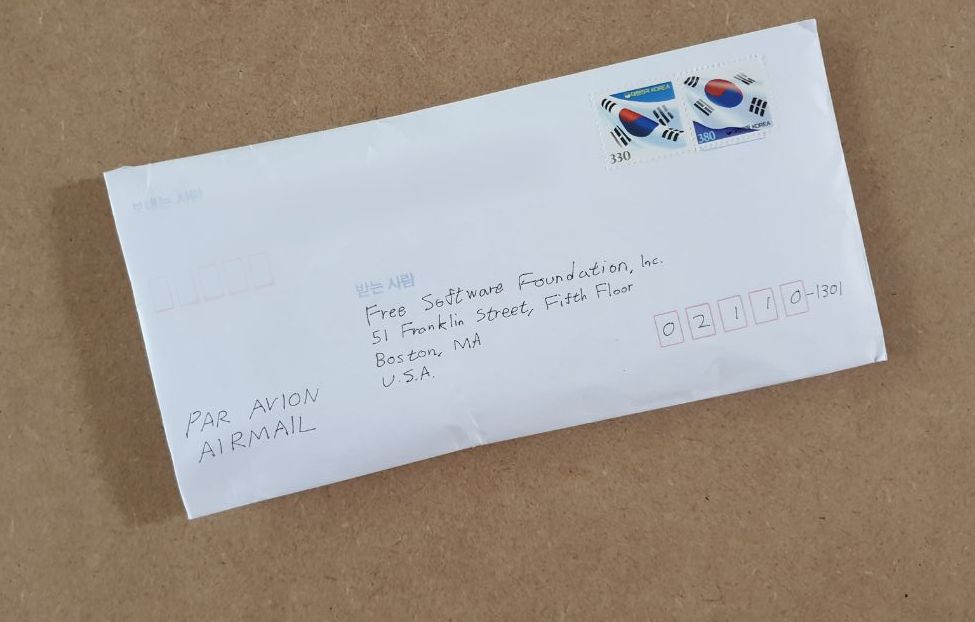 대한민국 KOREA
330
380
KOREA
보내는 사람
받는 사람
Free Software Foundation, Inc.
51 Franklin Street, Fifth Floor
Boston, MA
U.S.A.
02110-1301
PAR AVION
AIRMAIL